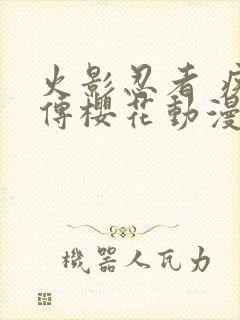 火影忍者 疾
傳櫻花動漫
機器人瓦力